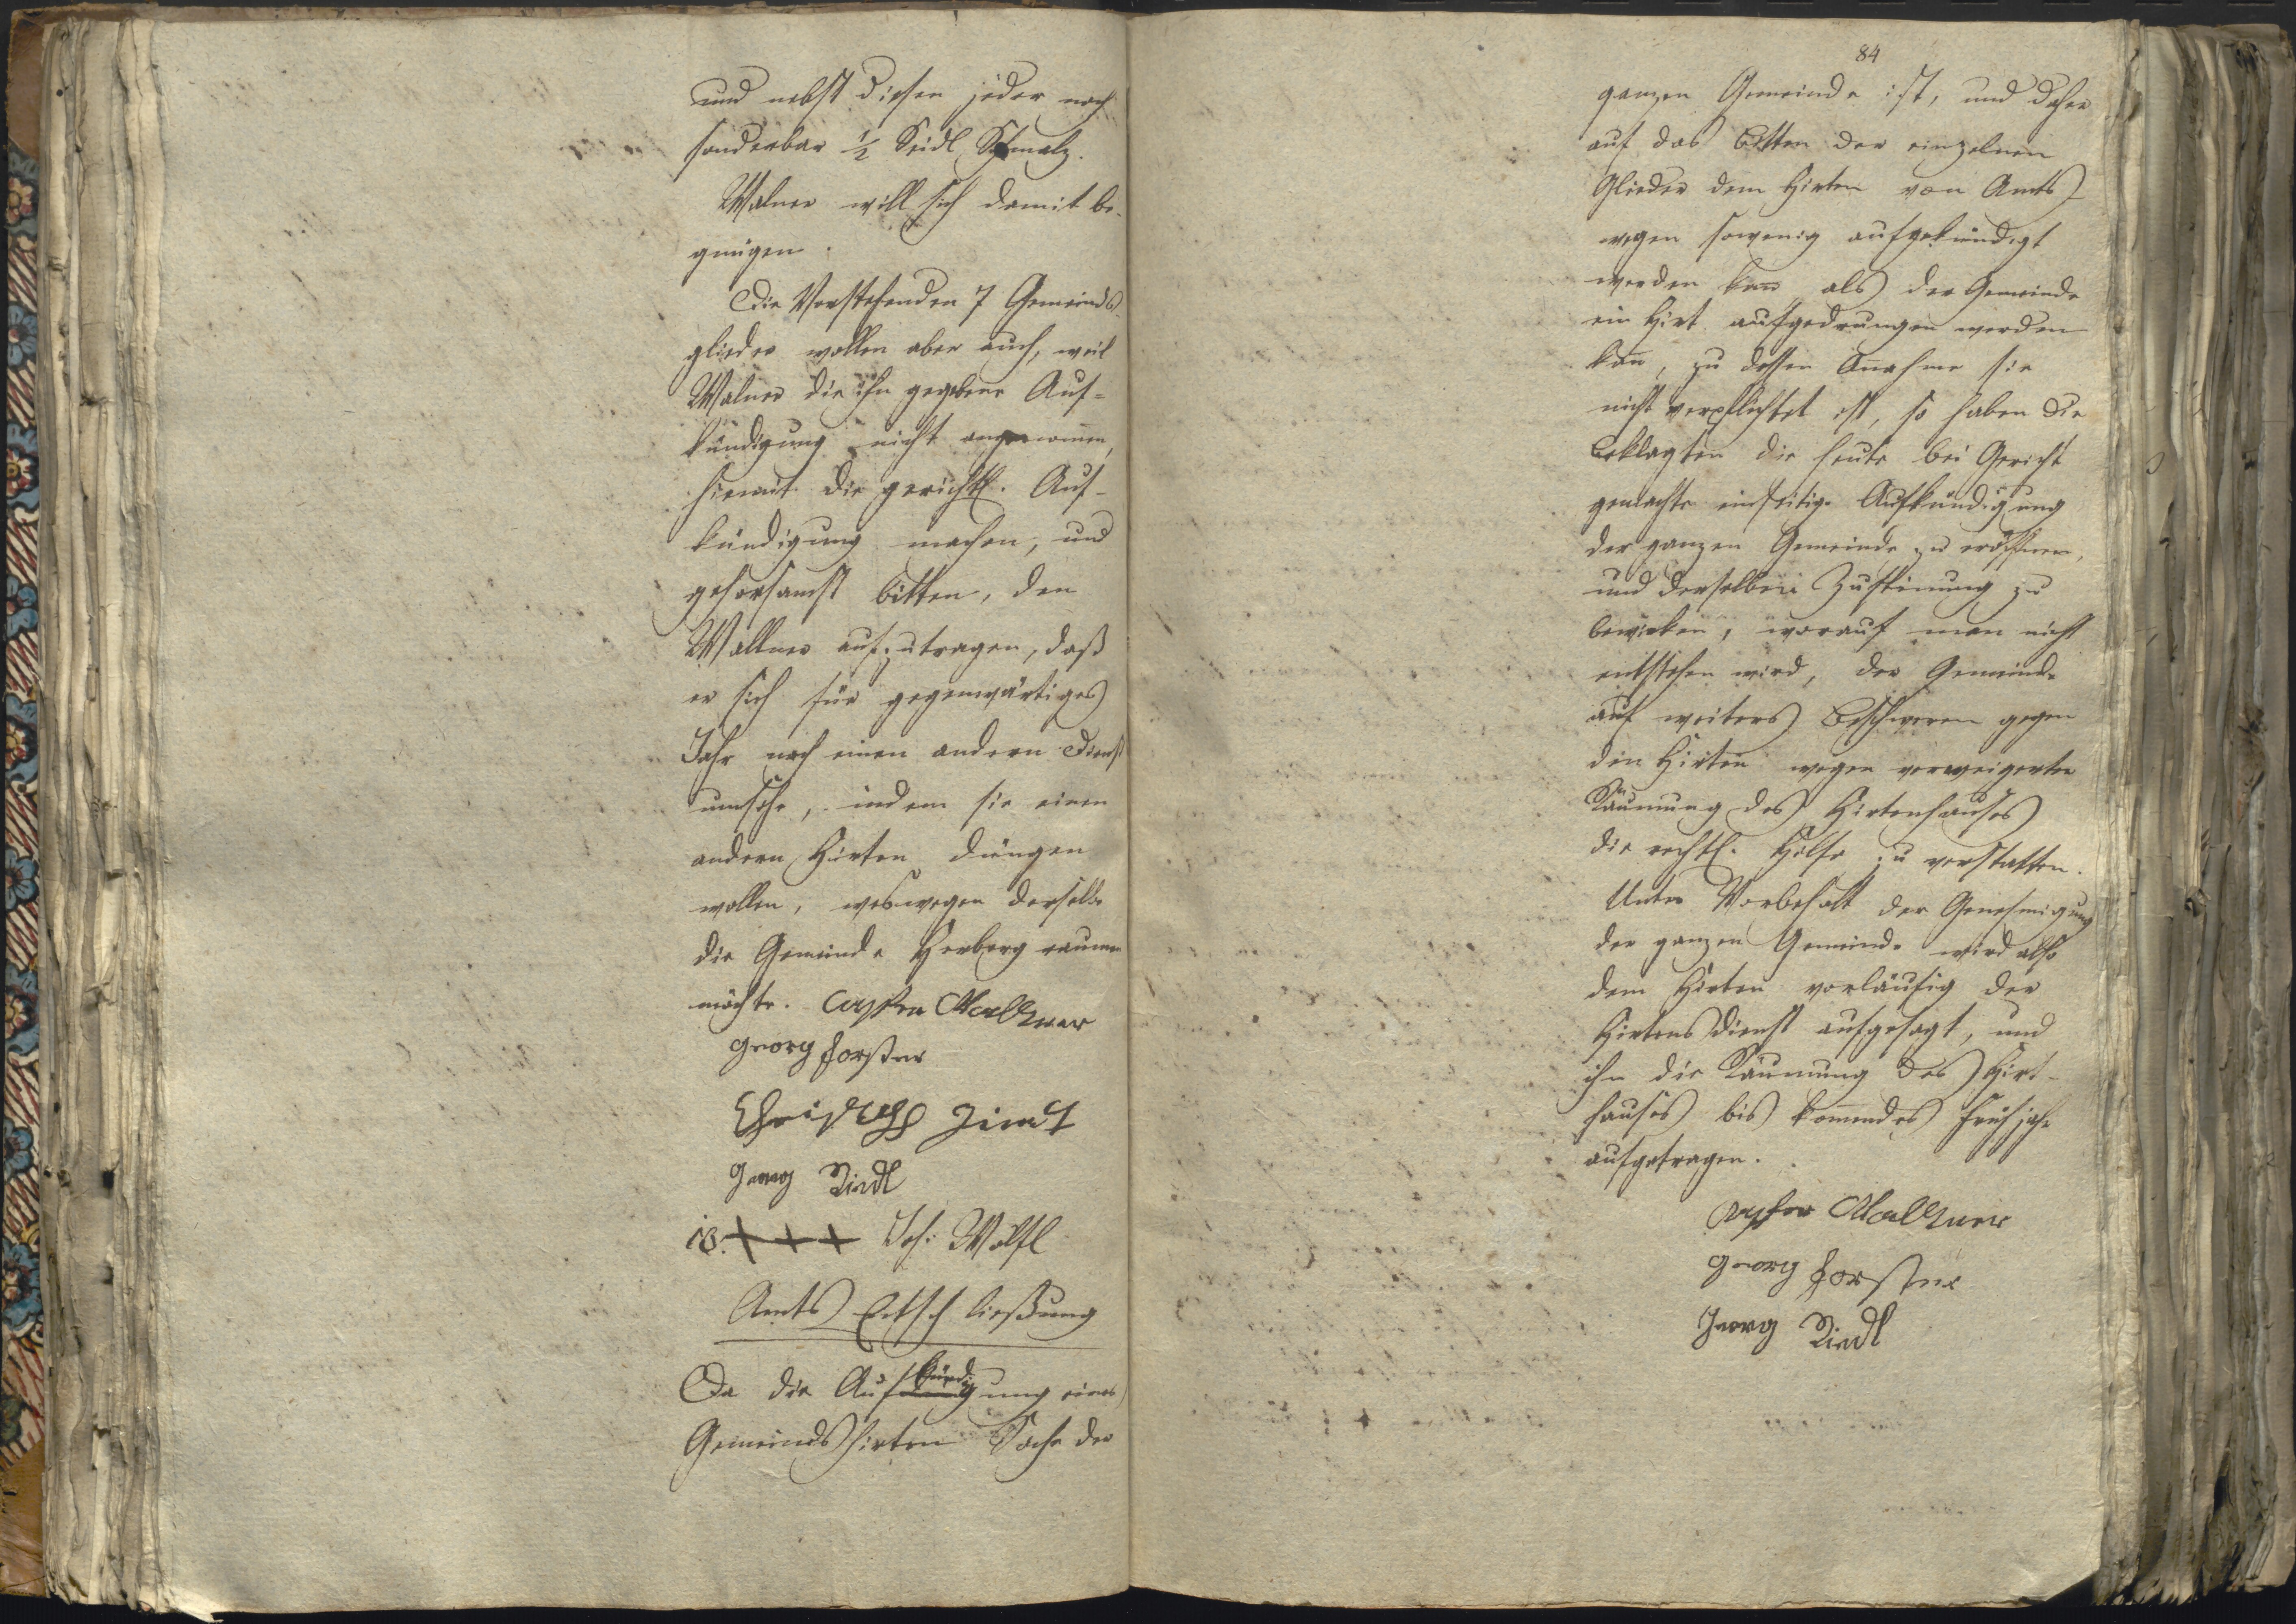 und nebst diesen jeder noch
sonderbar ½ Seidl Schmalz.
Walner will sich damit be-
gnügen.
Die Vorstehenden 7 Gemeinds-
glieder wollen aber auch, weil
Walner die ihm gegebene Auf=
kündigung nicht angenommen,
hiemit die gerichtl. Auf-
kündigung machen, und
gehorsamst bitten, den
Wallner aufzutragen, daß
er sich für gegenwärtiges
Jahr nach einen andern Dienst
umsehe, indem sie einen
andern Hürten düngen
wollen, weswegen derselbe
die Gemeinde Herberg raumen
möchte. Casper Wallner
Georg Forster
Christoph
Georg Riedl
+ + + Joh: Wölfl
Amts Entschließung
Da die Aufkündigung eines
Gemeinds Hirten Sache der
84
ganzen Gemeinde ist, und daher
auf das Bitten der einzelnen
Glieder dem Hirten von Amts
wegen sowenig aufgekündigt
werden kann als der Gemeinde
ein Hirt aufgedrungen werden
kann, zu dessen Annahme sie
nicht verpflichtet ist, so haben die
Beklagten die heute bei Gericht
gemachte einseitige Aufkündigung
der ganzen Gemeinde zu eröffnen,
und derselben Zustimmung zu
bewirken, worauf man nicht
entstehen wird, der Gemeinde
auf weiters Beschweren gegen
den Hirten wegen verweigerter
Räumung des Hirtenhauses
die rechtl. Hilfe zu verstatten.
Unter Vorbehalt der Genehmigung
der ganzen Gemeinde wird also
dem Hirten vorläufig der
Hirtensdienst aufgesagt, und
ihm die Räumung des Hirt-
hauses bis kommendes Frühjahr
aufgetragen.
Casper Wallner
Georg Forster
Georg Riedl